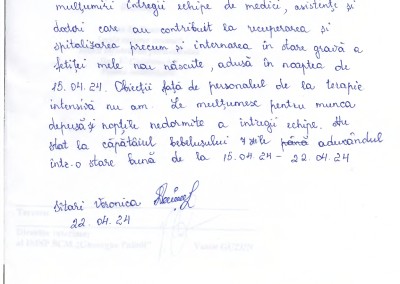 mulțumiri întregii echipe de medici, asistente și
doctori care au contribuit la recuperarea și
spitalizarea precum și internarea în stare gravă a
fetiței mele nou născute, adusă în noaptea de
15.04.24. Obiecții față de personalul de la terapie
intensivă nu am. Le mulțumesc pentru munca
depusă și nopțile nedormite a întregii echipe. Au
stat la căpătâiul bebelușului zile până aducându
într-o stare bună de la 15.04.24 – 22.04.24
Sitari Veronica
22.04.24